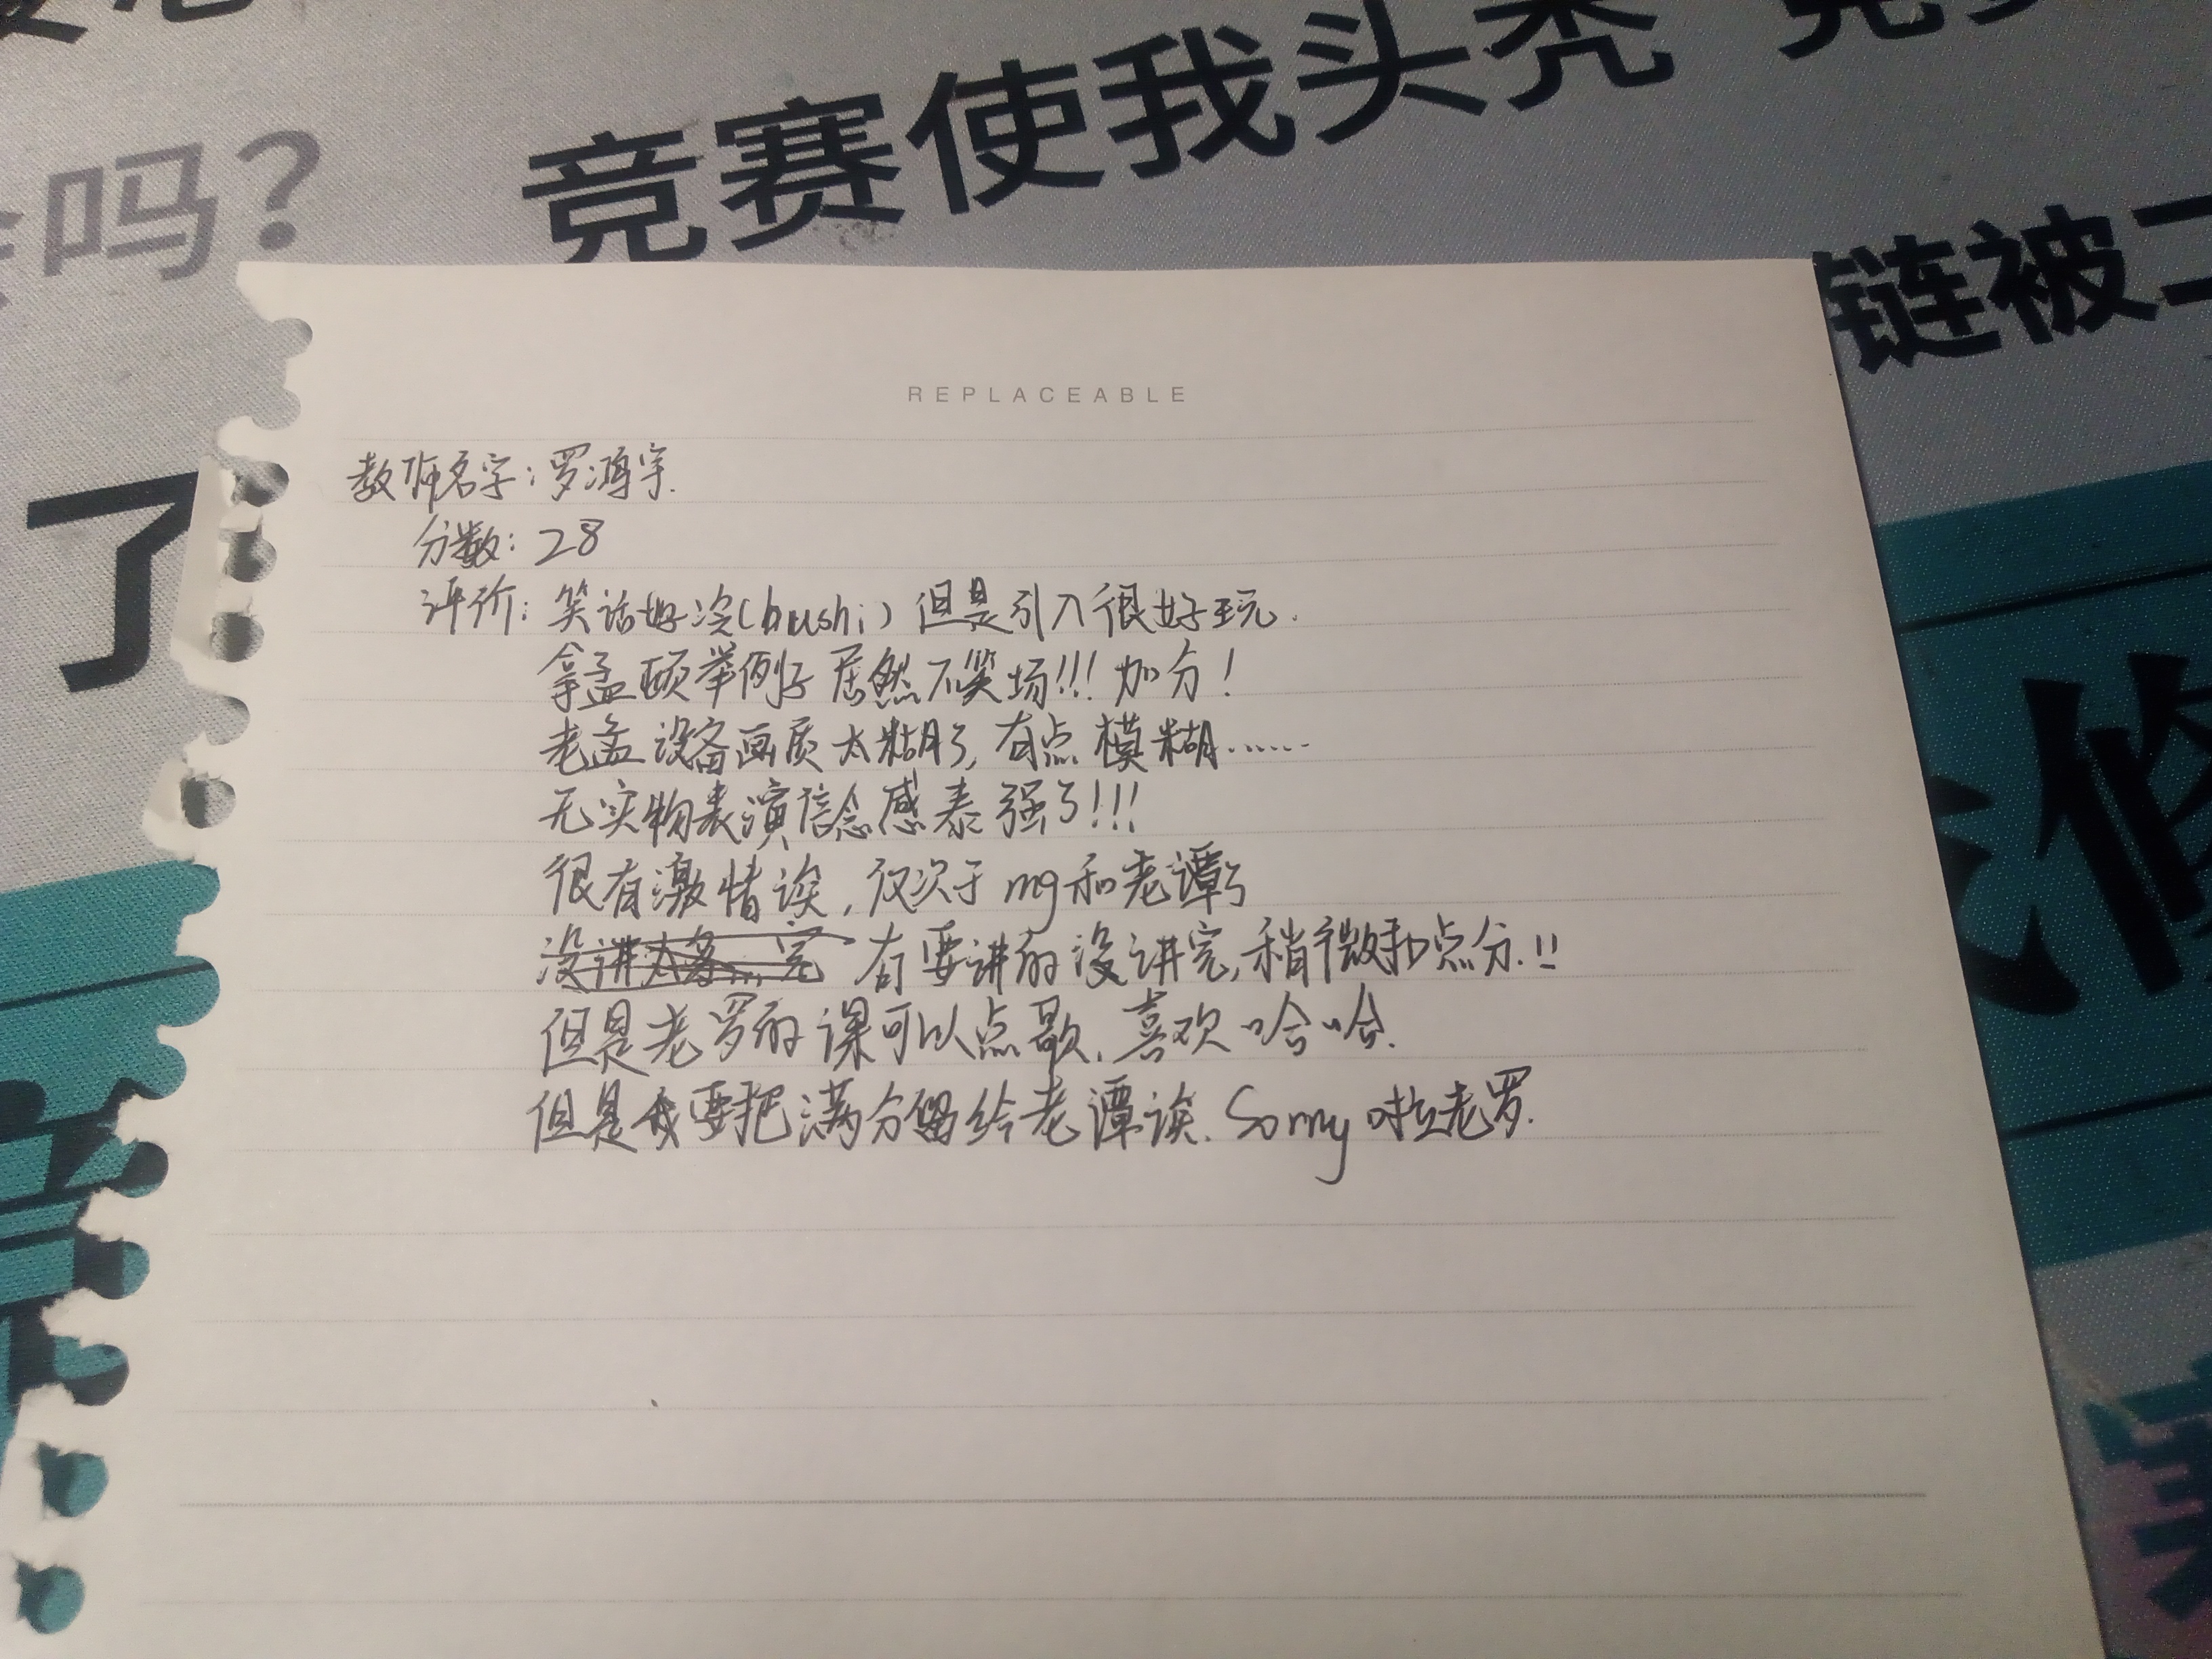 吗？
竞赛使我头秃
链被
了
修
REPLACEABLE
教师名字：罗鸿宇.
分数：28
评价：笑话好冷(bushi）但是引入很好玩.
拿孟颐举例子居然不笑场!!!加分！
老孟设备画质太糊了,有点模糊……
无实物表演信念感泰强了!!!
很有激情诶,仅次于mg和老谭了
有要讲的没讲完,稍微扣点分.!!
但是老罗的课可以点歌,喜欢哈哈.
但是我要把满分留给老谭诶.Sorry啦老罗.